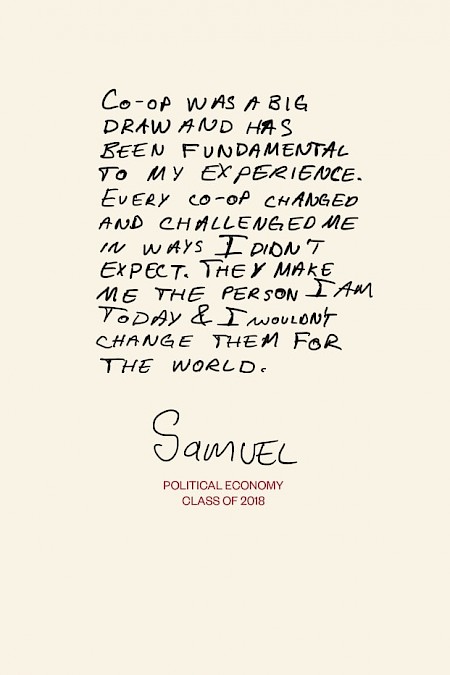 Co-op WAS A BIG
DRAW AND HAS
BEEN FUNDAMENTAL
TO MY EXPERIENCE.
EVERY CO-OP CHANGED
AND CHALLENGED ME
IN WAYS I DIDN'T
EXPECT. THEY MAKE
ME THE PERSON I AM
TODAY & I WOULDN'T
CHANGE THEM FOR
THE WORLD.
SAMUEL
POLITICAL ECONOMY
CLASS OF 2018